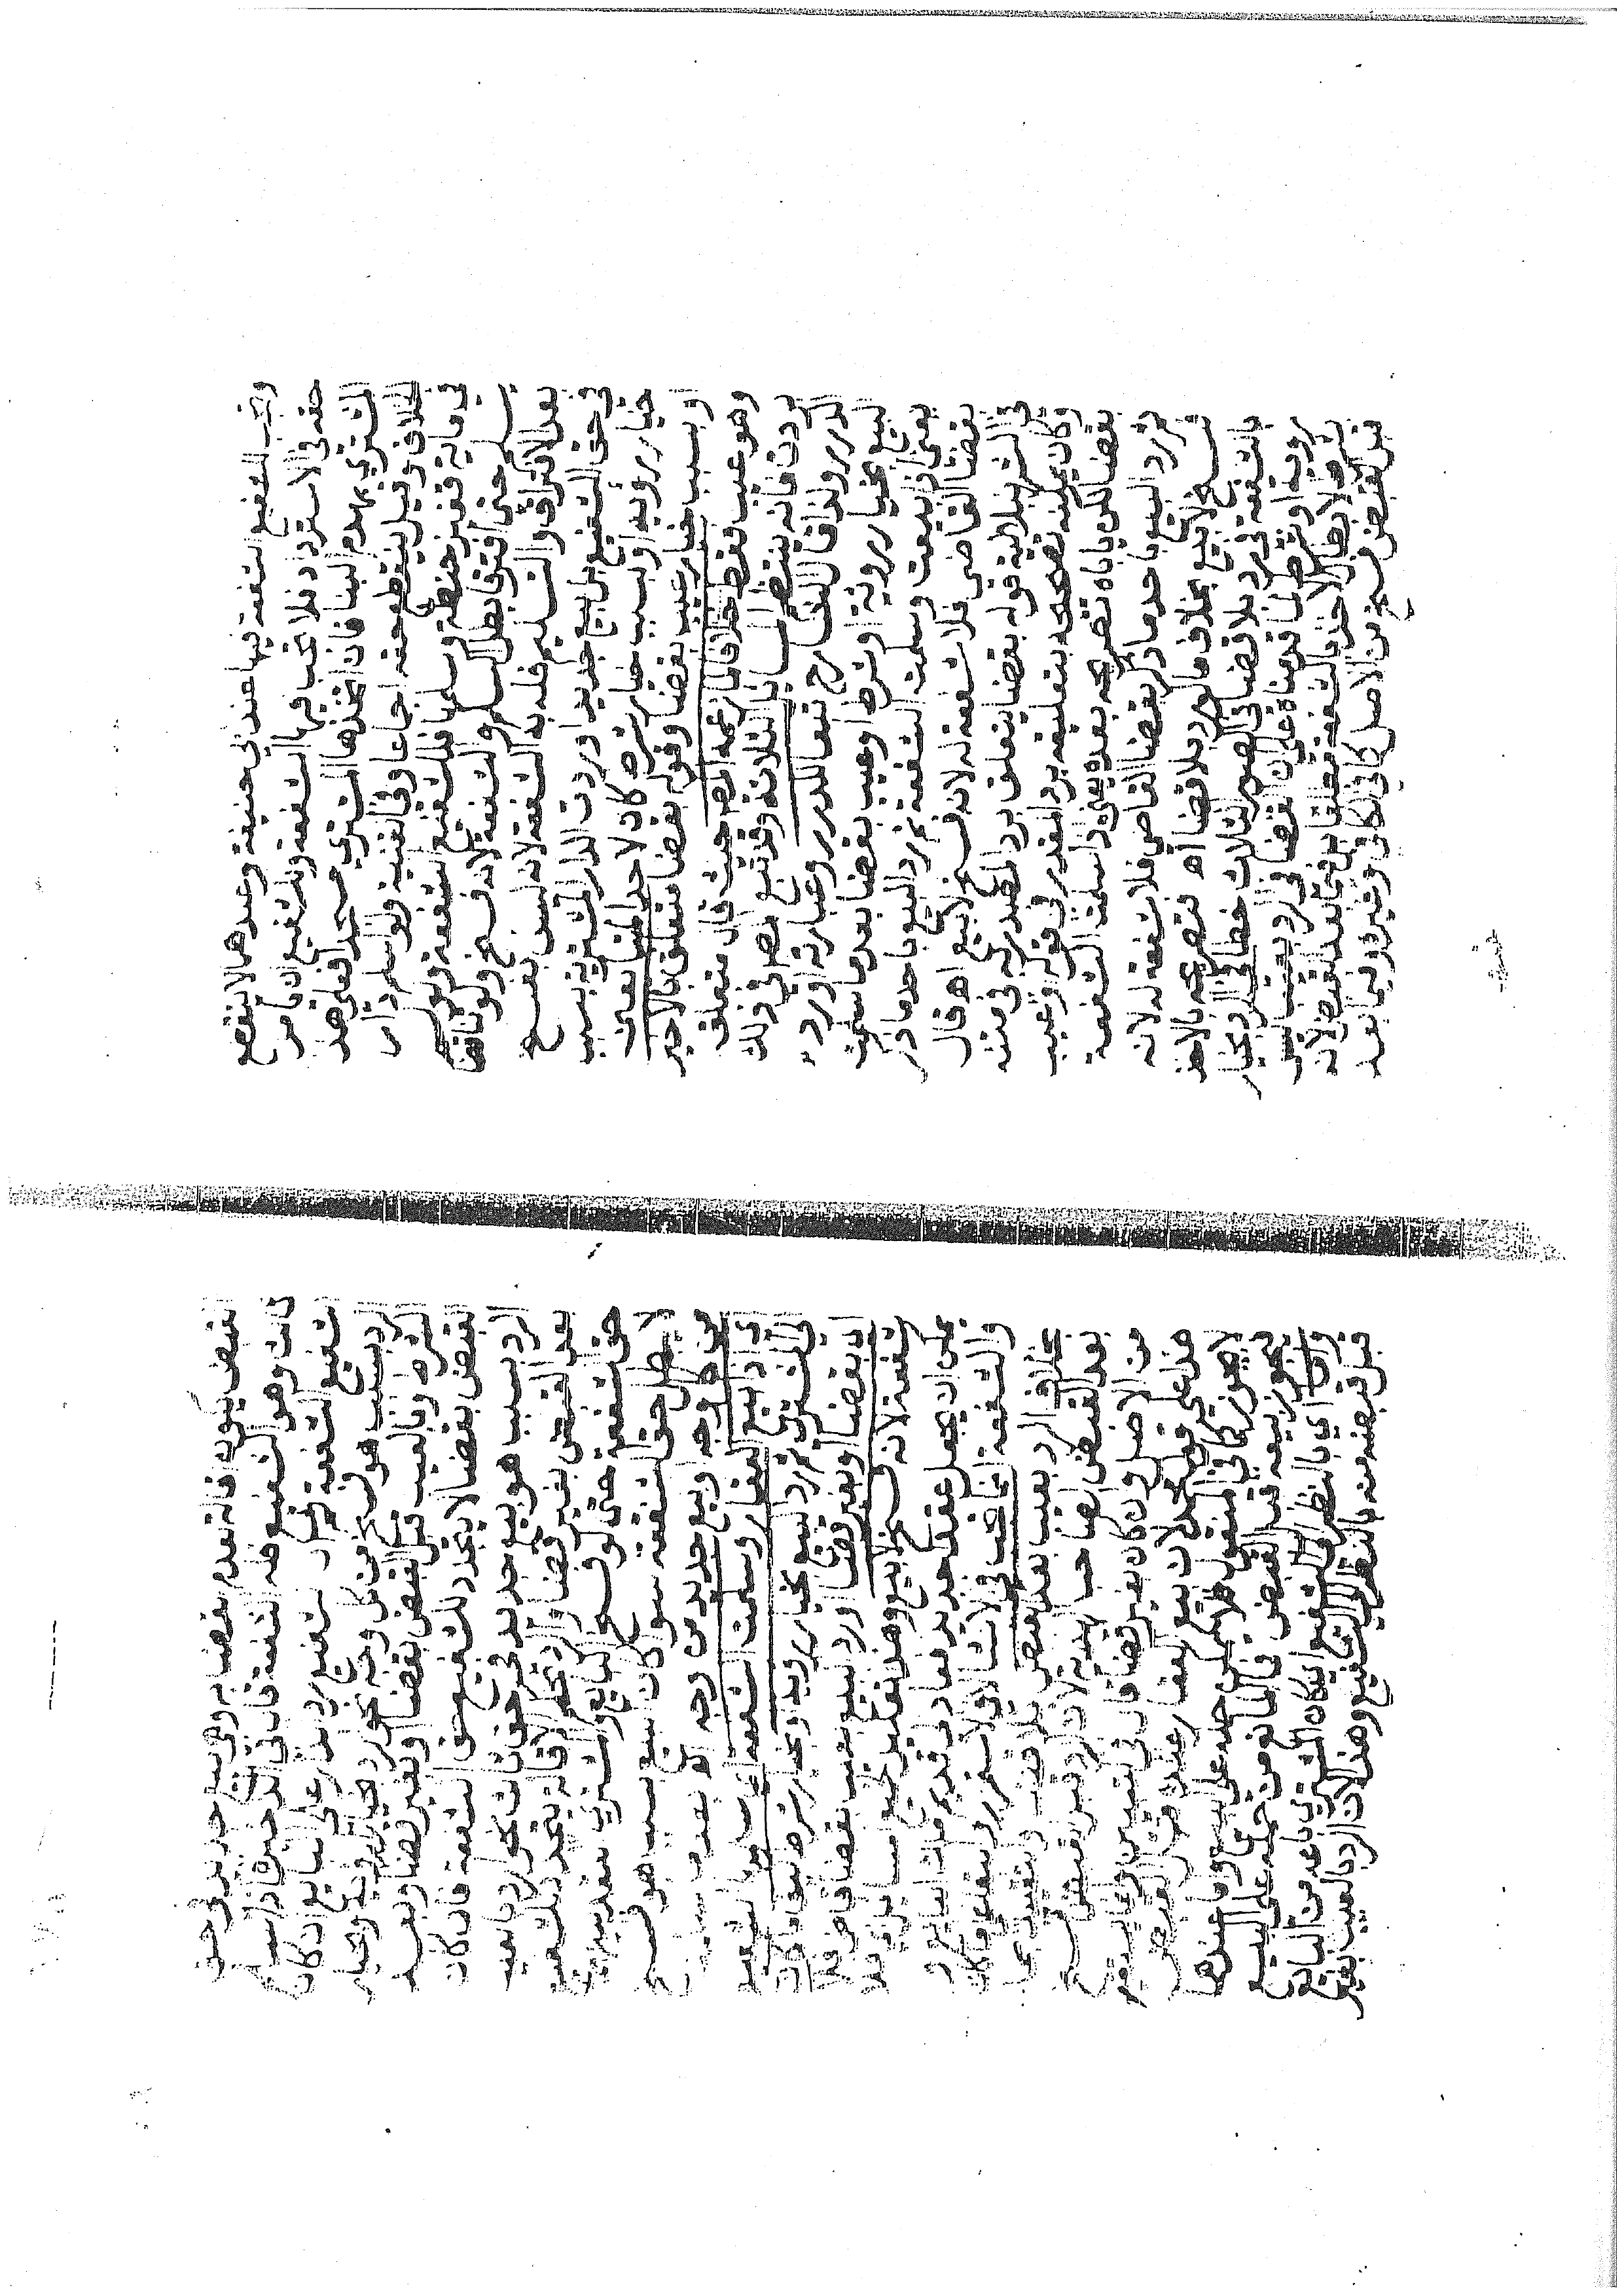 وتجب للشفيع الشفعة فيها عند ابي حنيفة وعندهما لا ينقطع
حقه في الاسترداد فلا تجب فيها الشفعة وللشفيع ان يامر
المشتري بهدم البنا فان اتخذها المشتري مسجدا فعلى هذا
الخلاف وقيل ينقطع حقه اجماعا وفي القنية ولو اسلم دارا
في ماية قفيز حنطة وسلمها فللشفيع الشفعة ولو لم
يسلم حتى افترقا بطل السلم والشفعة لانه فسخ ولو تناقضا
بعد الافتراق والتسليم فله به الشفعة لانه ليس بفسخ
في حق الشفيع بل بيع جديد او ردت الدار المشترية بسبب
خيار رؤية او بسبب خيار شرط كان لاحد المتبايعين
او بسبب خيار عيب بقضا وقوله بقضا متعلق بالاخير
وهو عيب فقط خلافا لما زعمه المص حيث قال متعلق
بردت فانه ينتظم المسايل الثلاثة وقد تبع المص في ذلك
الدرر ولذا قال الشارح تبعا للدرر وعبارته او رد
البيع بخيار رؤية او شرط او عيب بقضا بعد ما سلمت
يعني اذا بيعت وسلمت الشفعة ثم رد البيع باحد ما ذكر
بقضا القاضي فلا شفعة له لانه فسخ لا بيع اه قال
في الشرنبلالية قوله بقضا يتعلق برد المصدر به في متنه
وكان يمكنه تصحيحه بتعليقه برد المقدر في قوله وعيب
بقضا لكن ياباه تصريحه بعده يعني اذا سلمت الشفعة
ثم رد البيع باحد ما ذكر بقضا القاضي فلا شفعة له لانه
فسخ لا بيع بخلاف ما لو رد بلا قضا اه فتصريحه بالاخذ
بالشفعة في رد بلا قضا في الصور الثلاث خطا في الرد بخيار
رؤية او شرط لما قدمناه على ان القضا في رد بعيب انما
شرط لابطال الاخذ بالشفعة مطلقا يعني بما بعد القبض لانه
قبل القبض فسخ من الاصل كما في الكافي وفيما بعد
القبض يكون اقالة لعدم القضا به وهي بيع جديد في حق
ثالث وهو الشفيع فله الشفعة قال في الذخيرة اذا سلم
الشفيع الشفعة ثم رد الدار على البايع ان كان
الرد بسبب هو فسخ من كل وجه نحو الرد بخيار الرؤية وبخيار
الشرط وبالعيب قبل القبض بقضا او بغير قضا وبعد
القبض بقضا لا يتجدد للشفيع حق الشفعة فان كان
الرد بسبب هو بيع جديد في حق ثالث نحو الرد بالعيب
بعد القبض بغير قضا والرد بحكم الاقالة يتجدد للشفيع
حق الشفعة حتى لو فسخ البايع والمشتري العقد
لا يبطل حق الشفعة سوا كان الفسخ بسبب هو فسخ
من كل وجه او بيع جديد من وجه اه بعدما سلمت
اي اذا بيع العقار وسلمت الشفعة اي سلمها الشفيع
الى المشتري ثم رد البيع بخيار رؤية او بخيار شرط كيفما كان
او بقضا او بغير قضا او رد البيع بعيب بقضا قاض فلا
شفعة لانه فسخ لا بيع وهذا تعليل لجميع مسايل
على ان يجعل عقدا جديدا فعاد الى قديم ملك البايع
والشفعة انما تجب في الانشا لا في الاستمرار والبقا على ما كان
بخلاف الرد بعيب بعد القبض بلا قضا والتقييد بما
بعد القبض لان الرد قبل القبض فسخ
من الاصل وان كان بغير قضا قال في التبيين
هذا على قول محمد لان بيع العقار عنده قبل القبض
لا يجوز كما في المنقول فلا يمكن حمله على البيع واما عندهما
يجوز بيعه قبل القبض فما المانع من حمله على البيع
اي بالنظر للشفيع المشتري باعه من البايع
قبل قبضه منه بالنظر الى الشفيع وهذا لان الرد بالعيب بغير